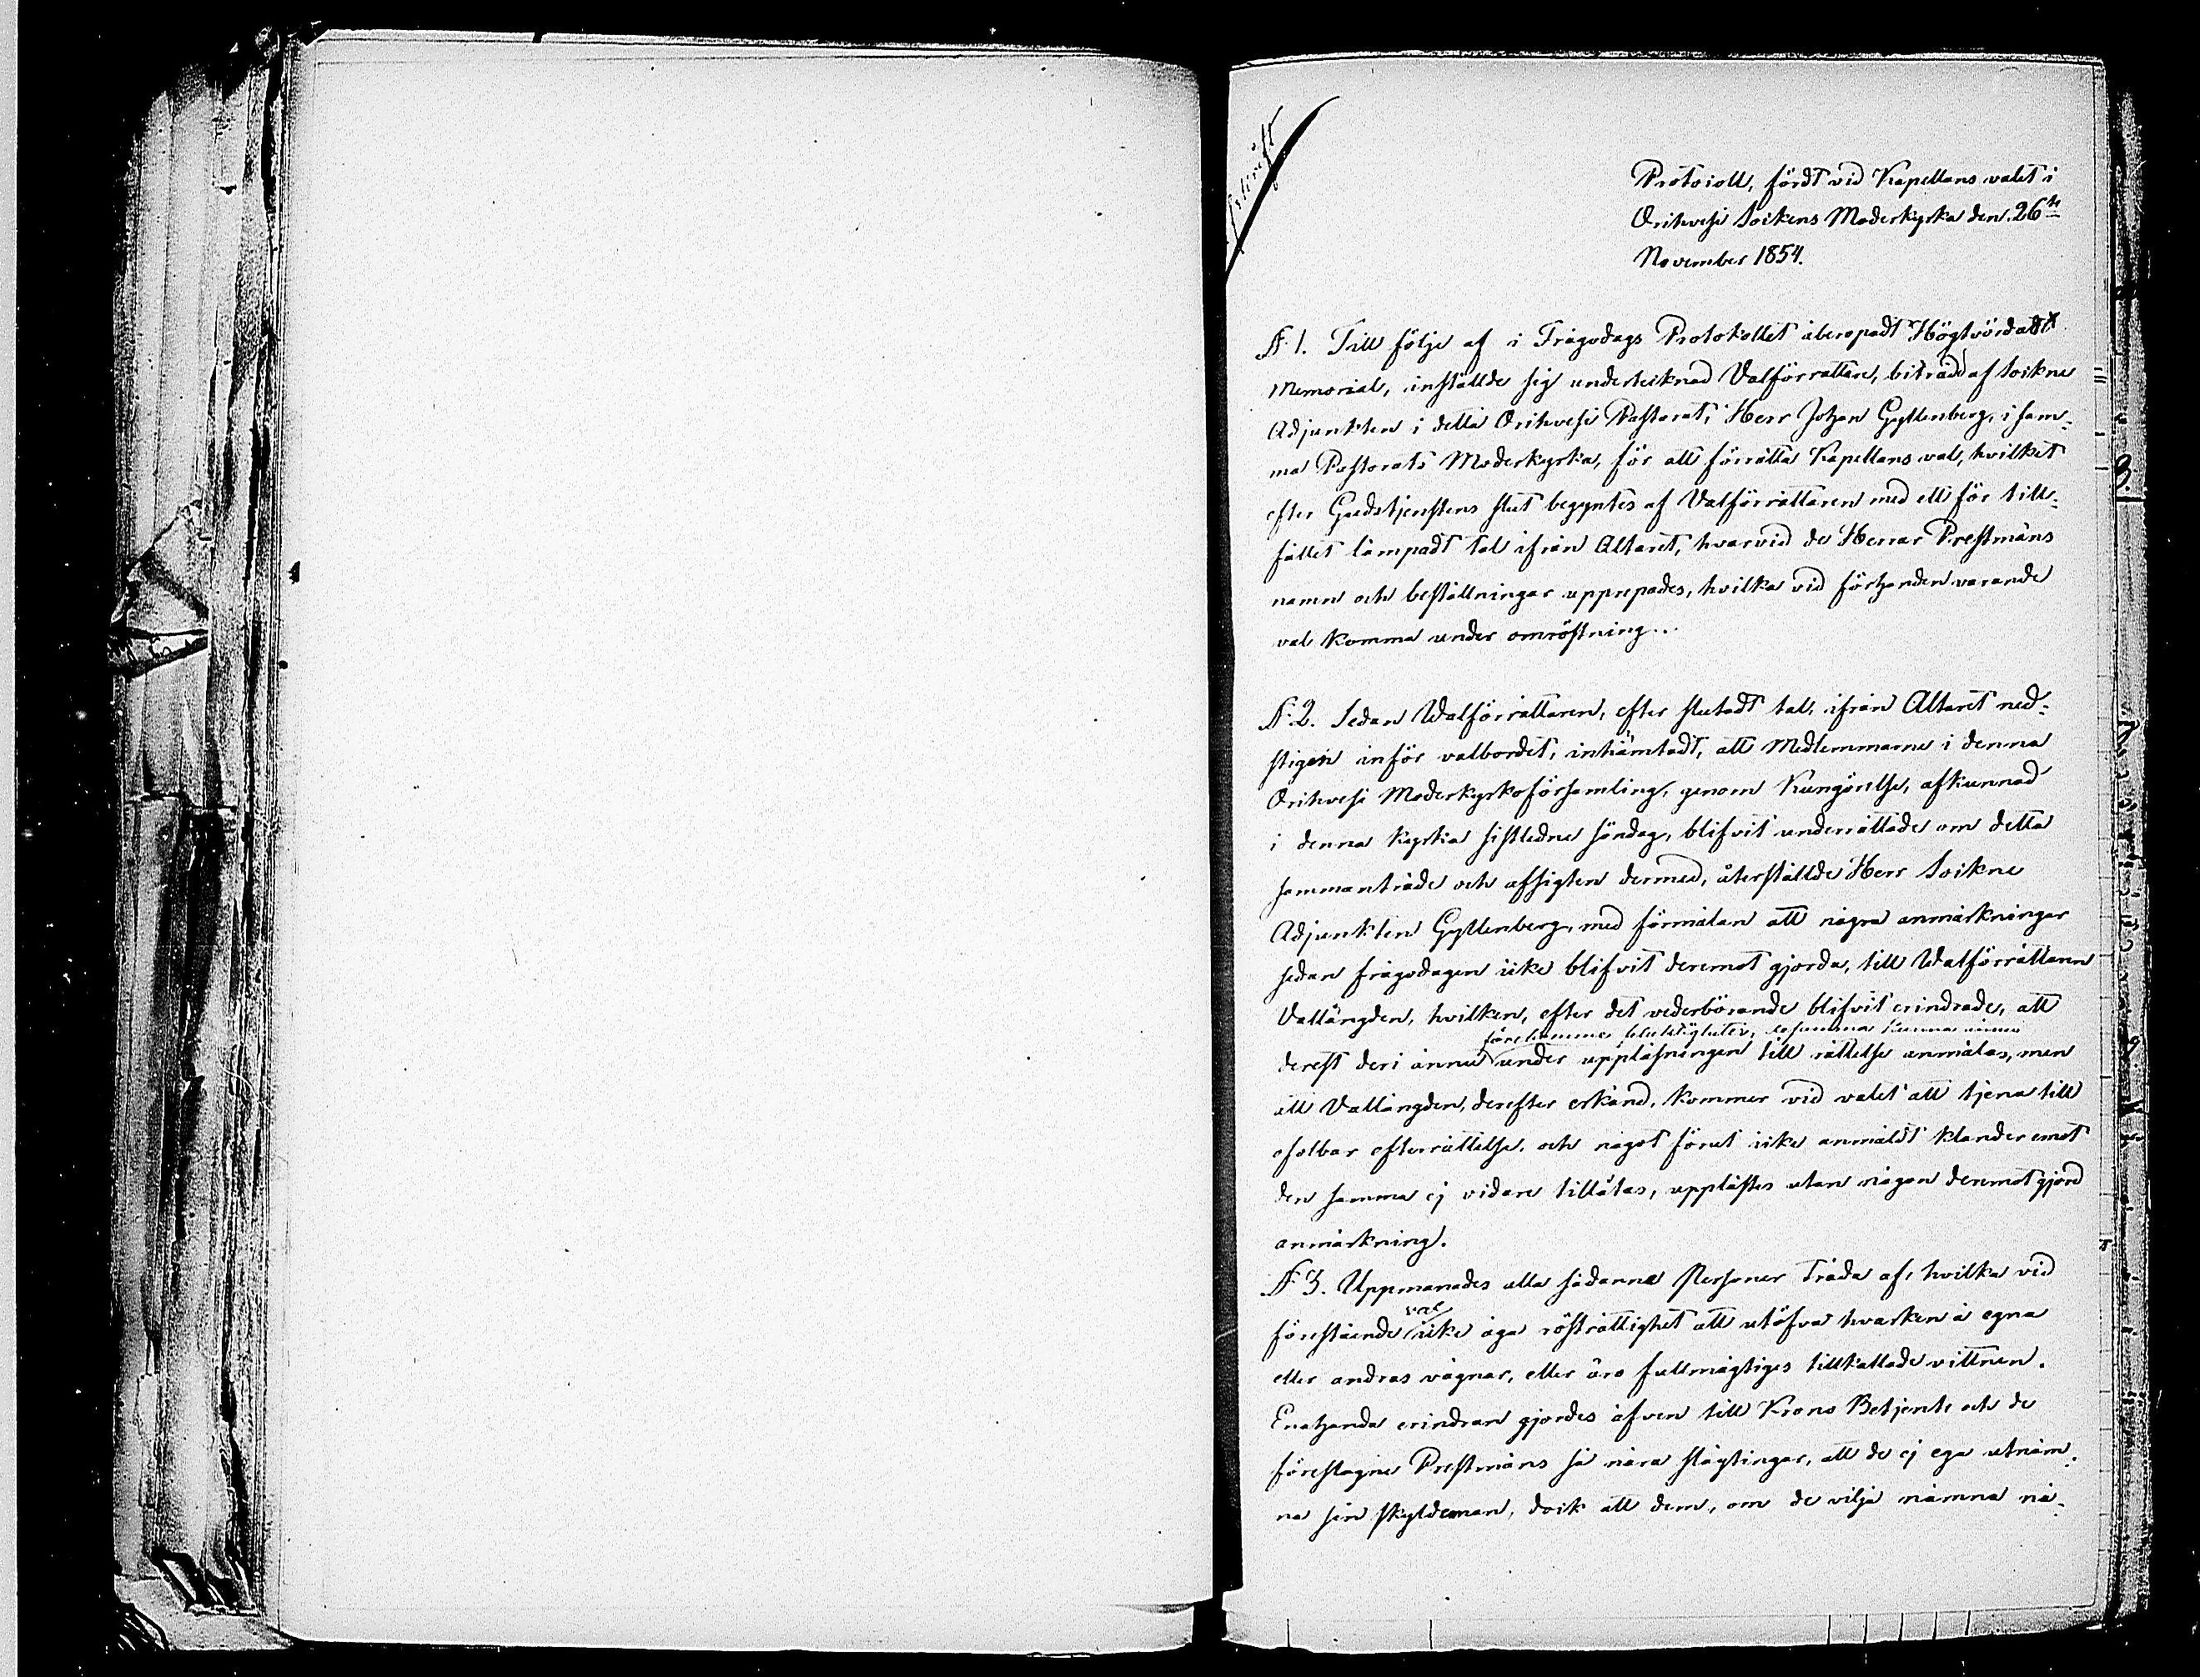 Afskrift
Protocoll, fördt vid Kapellans valet i
Orihvesi Sockens Moderkyrka den 26te
November 1854.
§ 1. Till följe af i Frågodags Protokollet åberopadt Högtvördadt
Memorial, inställde sig undertecknad Valförrättare, biträdd af Sockne
Adjunkten i detta Orihvesi Pastorat, Herr Johan Gyllenberg, i sam-
ma Pastorats Moderkyrka, för att förrätta Kapellans val, hvilket
efter Gudstjenstens slut begyntes af Valförrättaren med ett för till-
fället lämpadt tal ifrån Altaret, hvarvid de Herrar Prestmäns
namn och beställningar upprepades, hvilka vid förhanden varande
val komma under omröstning...
§ 2. Sedan Walförrättaren, efter slutadt tal, ifrån Altaret ned-
stigen inför valbordet, inhämtadt, att Medlemmarne i denna
Orihvesi Moderkyrkoförsamling, genom Kungörelse, afkunnad
i denna kyrka sistledne söndag, blifvit underrättade om detta
sammanträde och afsigten dermed, återställde Herr Sockne
Adjunkten Gyllenberg, med förmälan att några anmärkningar
sedan frågodagen icke blifvit deremot gjorda, till Walförrättaren
Vallängden, hvilken, efter det vederbörande blifvit erindrade, att
förekomma felaktigheter,
derest deri ännu under uppläsningen till rättelse anmälas, men
att Vallängden, derefter erkänd, kommer vid valet att tjena till
ofelbar efterrättelse, och något förut icke anmäldt klander emot
den samma ej vidare tillåtas, upplästes utan någon deremot gjord
anmärkning.
§ 3. Uppmanades alla sådanna Personer träda af, hvilka vid
val
förestående icke äga rösträttighet att utöfva hvarken å egna
eller andras vägnar, eller äro fullmägtiges tillkallade vittnen.
Enahanda erindran gjordes äfven till Krono Betjente och de
föreslagne Prestmäns så nära slägtingar, att de ej ega utnäm-
na sin skyldeman, dock att dem, om de vilja nämna nå-